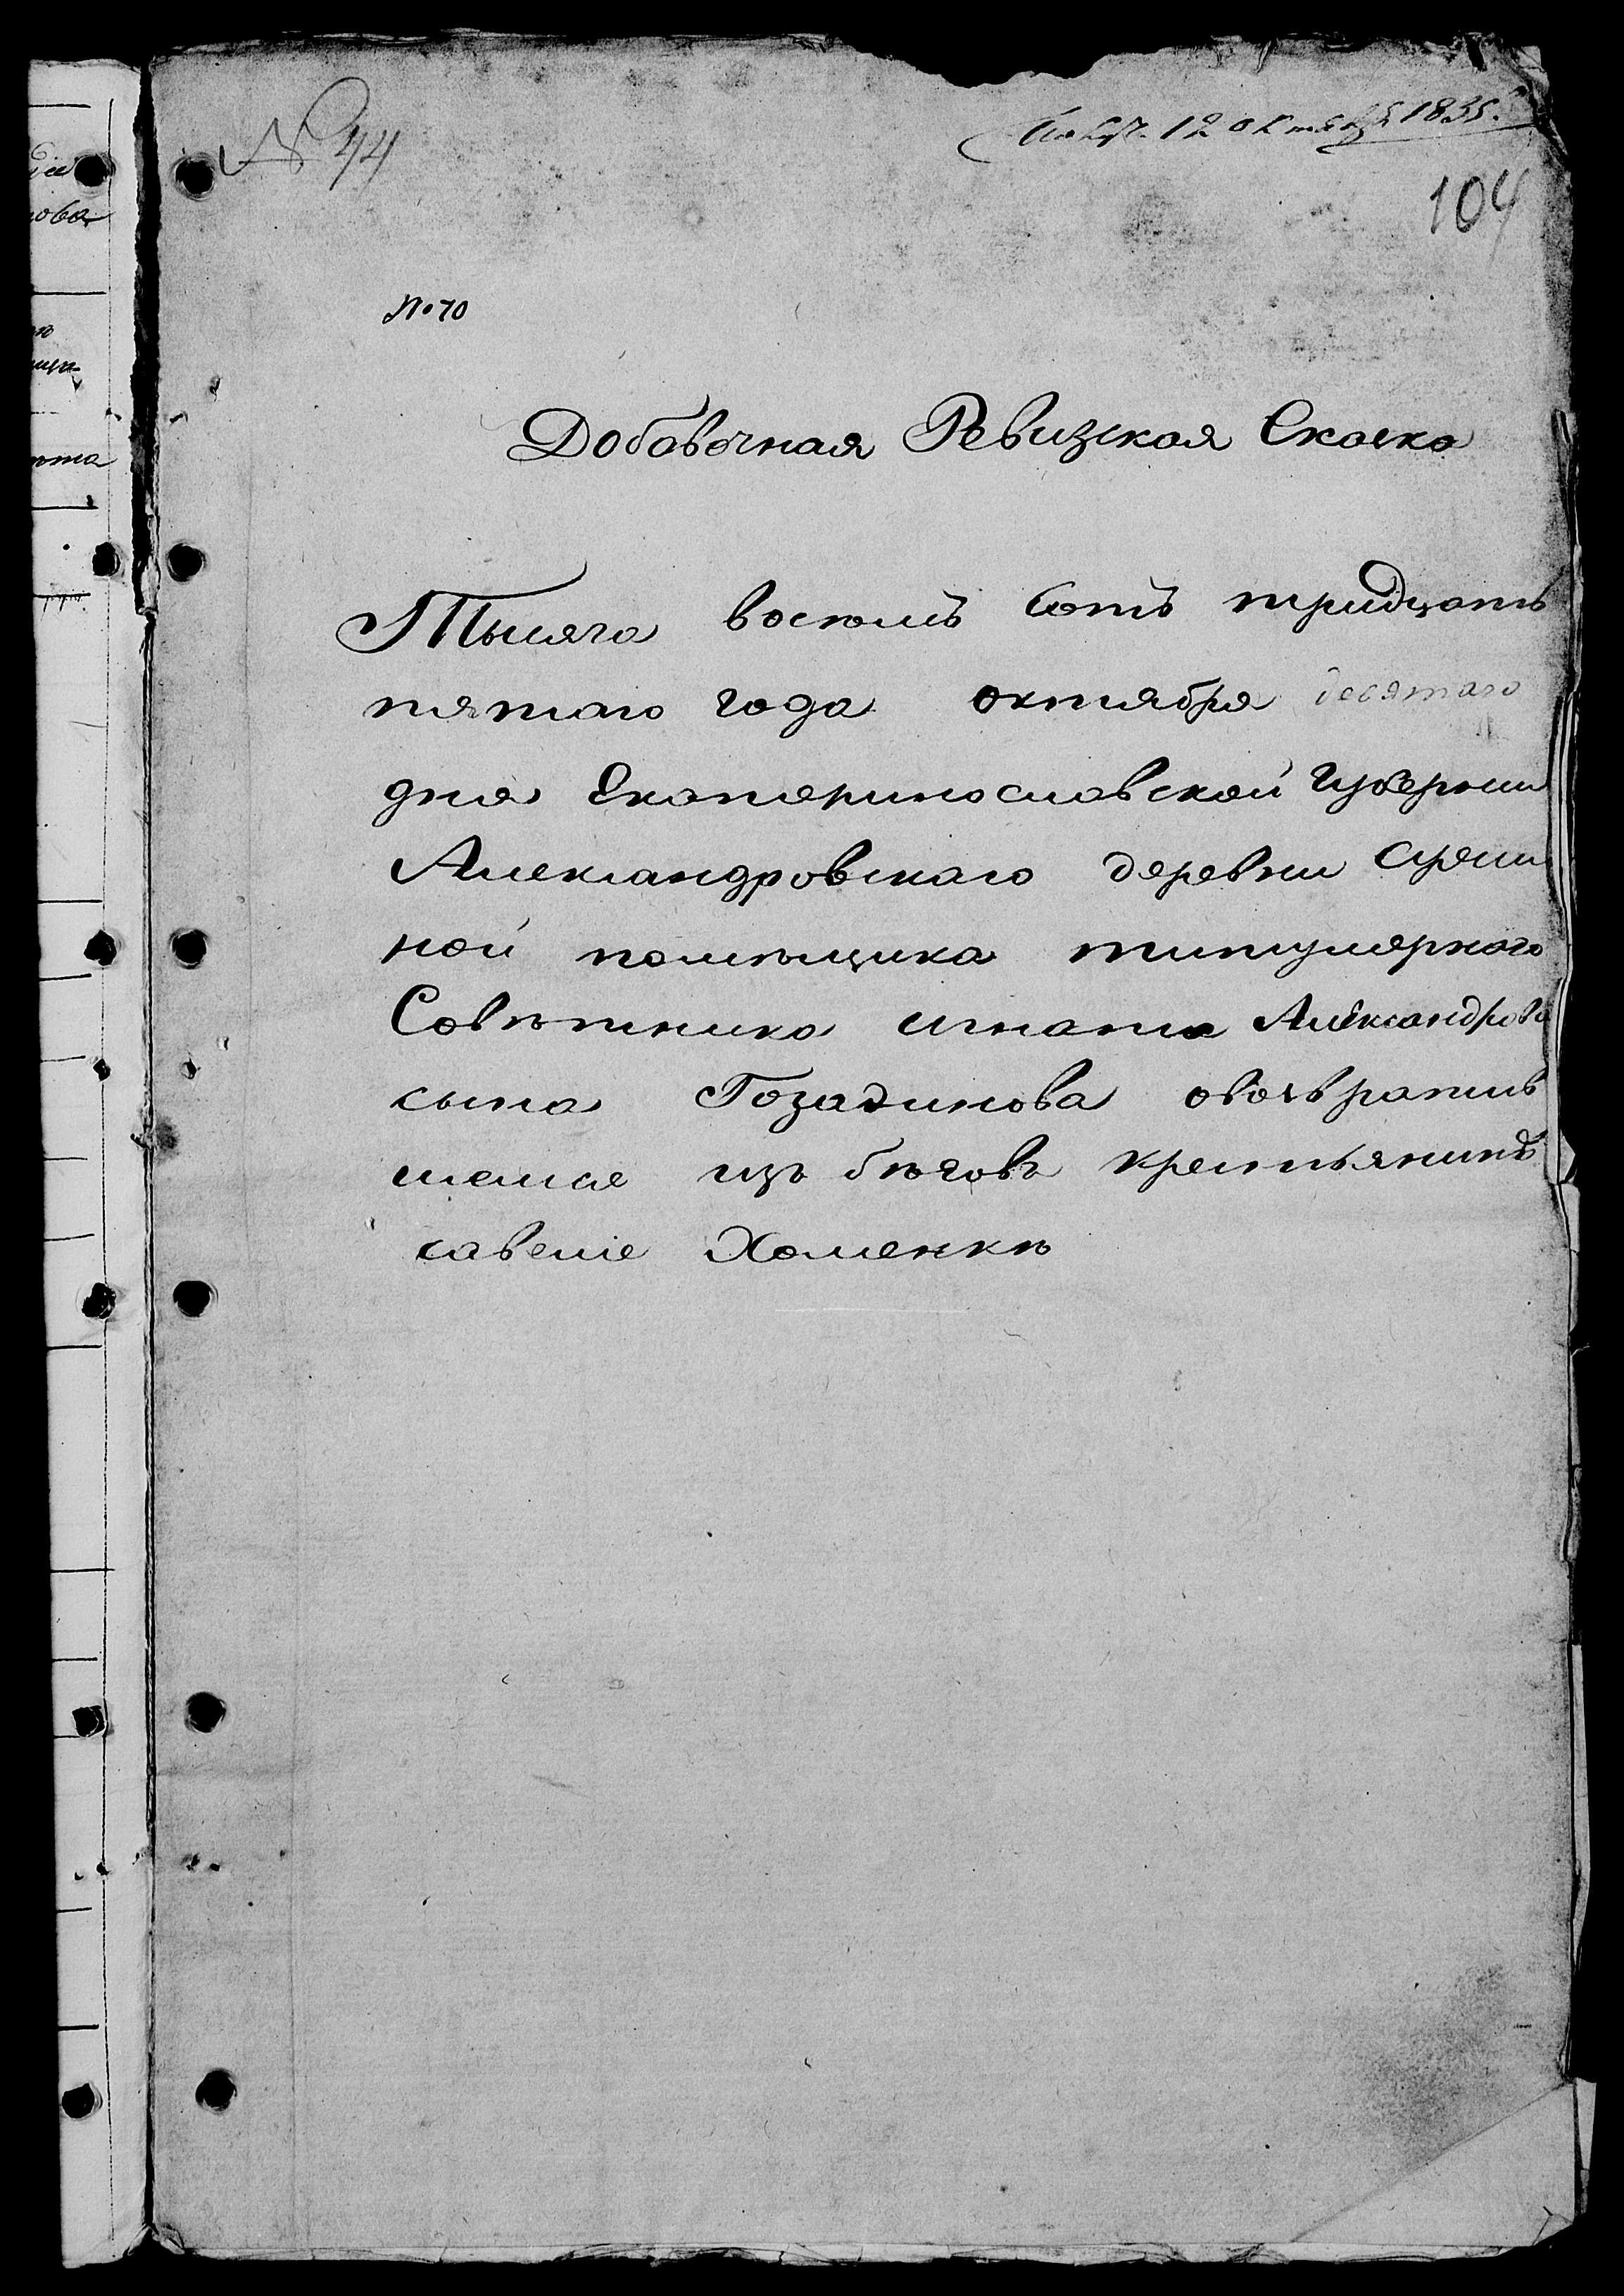 № 44
12 октября 1835.
104
№ 70
Добавочная Ревизская Скаска
Тысяча восемъ сотъ тридцать
пятаго года октября десятаго
дня Екатеринославской Губернии
Александровскаго деревни
ной помѣщика титулярнаго
Совѣтника игната Александрова
сына Гозадинова овозвратив
шемся изъ бѣговъ крестьянинѣ
савеліе Хоменкѣ